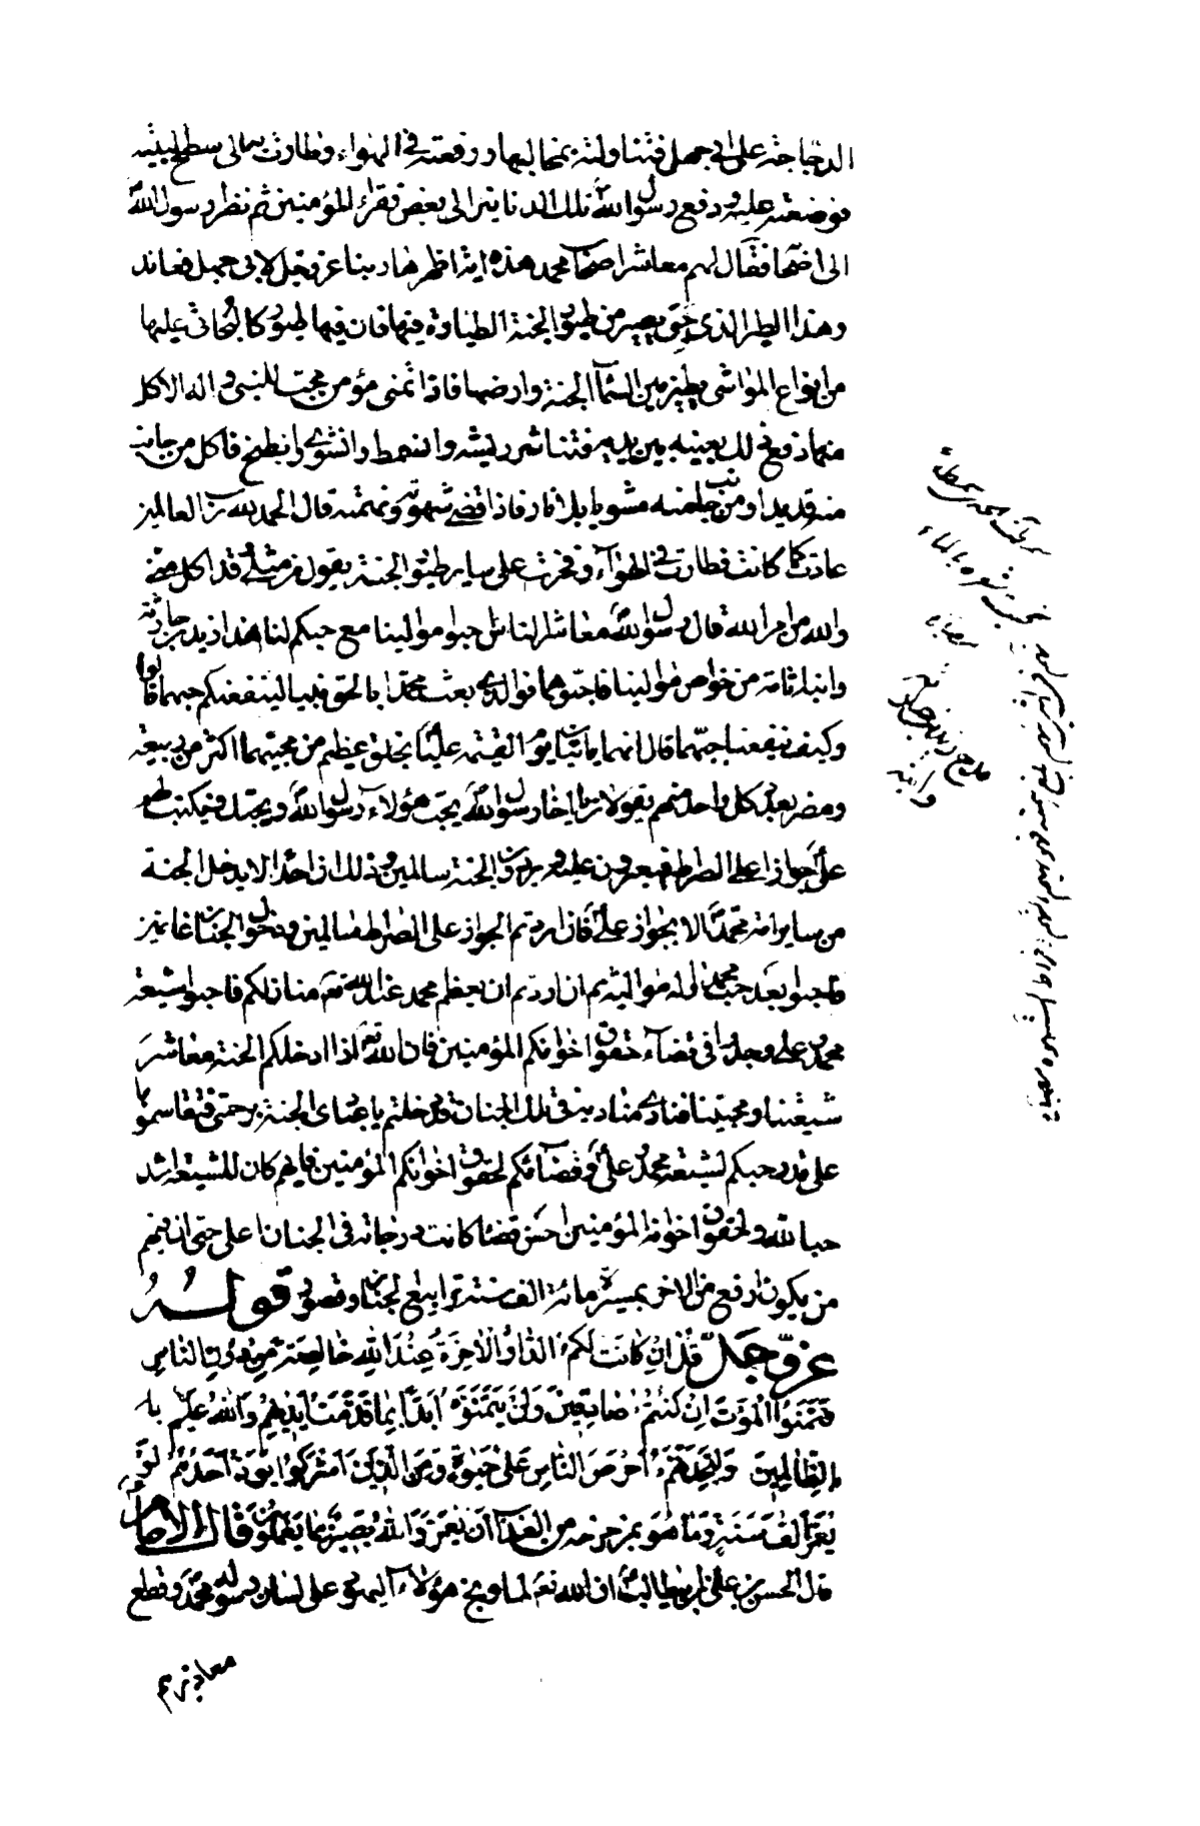 الدجاجة على ابي جهل فتناولته بمخاليبها ورفعته في الهواء وطارت به الى سطح لبيته
فوضعته عليه ودفع رسول الله تلك الدنانير الى بعض فقراء المؤمنين ثم نظر رسول الله
الى اصحابه فقال لهم معاشر اصحاب محمد هذه اية اظهرها ربنا عز وجل لابي جهل فعاند
وهذا الطير الذي حيى يصير من طيور الجنة الطيارة فيها فان فيها طيورا كالبخاتي عليها
من انواع المواشي يطير بين السماء الجنة وارضها فاذا تمنى مؤمن محب للنبي واله الاكل
منها وقع ذلك بعينه بين يديه فتناثر ريشه وانسمط وانشوى وانطبخ فاكل من جانب
منه قديدا ومن جانب منه مشويا بلا نار فاذا قضى شهوته ونهمته قال الحمد لله رب العالمين
عادت كما كانت فطارت في الهواء وفخرت على ساير طيور الجنة يقول من مثلي قد اكل مني
ولله من امر الله قال رسول الله معاشر الناس احبوا موالينا مع حبكم لنا هذا زيد بن حارثة
وابنه اسامة من خواص موالينا فاحبوهما فوالذي بعث محمدا بالحق نبيا لينفعنكم حبهما قالوا
وكيف ينفعنا حبهما قال انهما ياتيان يوم القيمة عليا بخلق عظيم من محبيهما اكثر من ربيعة
ومضر بعدد كل واحد منهم يقولان يا اخا رسول الله يحب هؤلاء رسول الله ويحبك فيكتب لهم
علي جوازا على الصراط فيعبرون عليه ويردون الجنة سالمين وذلك ان احدا لا يدخل الجنة
من ساير امة محمد الا بجواز علي فان اردتم الجواز على الصراط سالمين ودخول الجنان غانمين
فاحبوا بعد حب محمد واله مواليه ثم ان اردتم ان يعظم محمد عند الله تع منازلكم فاحبوا شيعة
محمد وعلي وجدوا في قضاء حقوق اخوانكم المؤمنين فان الله تع اذا ادخلكم الجنة معاشر
شيعتنا ومحبينا نادى مناديه في تلك الجنان قد دخلتم يا عبادي الجنة برحمتي فتقاسموها
على قدر حبكم لشيعة محمد وعلي وقضائكم لحقوق اخوانكم المؤمنين فايهم كان للشيعة اشد
حبا لله ولحقوق اخوانه المؤمنين احسن قضاء كانت درجاته في الجنان اعلى حتى ان فيهم
من يكون ارفع من الاخر بمسيرة مائة الف سنة ترابيع الجنان وقصور قوله
عز وجل قل ان كانت لكم الدار الاخرة عند الله خالصة من دون الناس
فتمنوا الموت ان كنتم صادقين ولن يتمنوه ابدا بما قدمت ايديهم والله عليم با
الظالمين ولتجدنهم احرص الناس على حيوة ومن الذين اشركوا يود احدهم لو
يعمر الف سنة وما هو بمزحزحه من العذاب ان يعمر والله بصير بما يعملون قال الامام
قال الحسن بن علي بن ابيطالب ان الله تع لما وبخ هؤلاء اليهود على لسان رسوله محمد وقطع
معاذيرهم